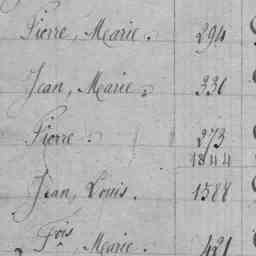 Pierre, Marie. 294
Jean, Marie. 331
Pierre. 273
1344
Jean, Louis. 1388
Fois, Marie. 421